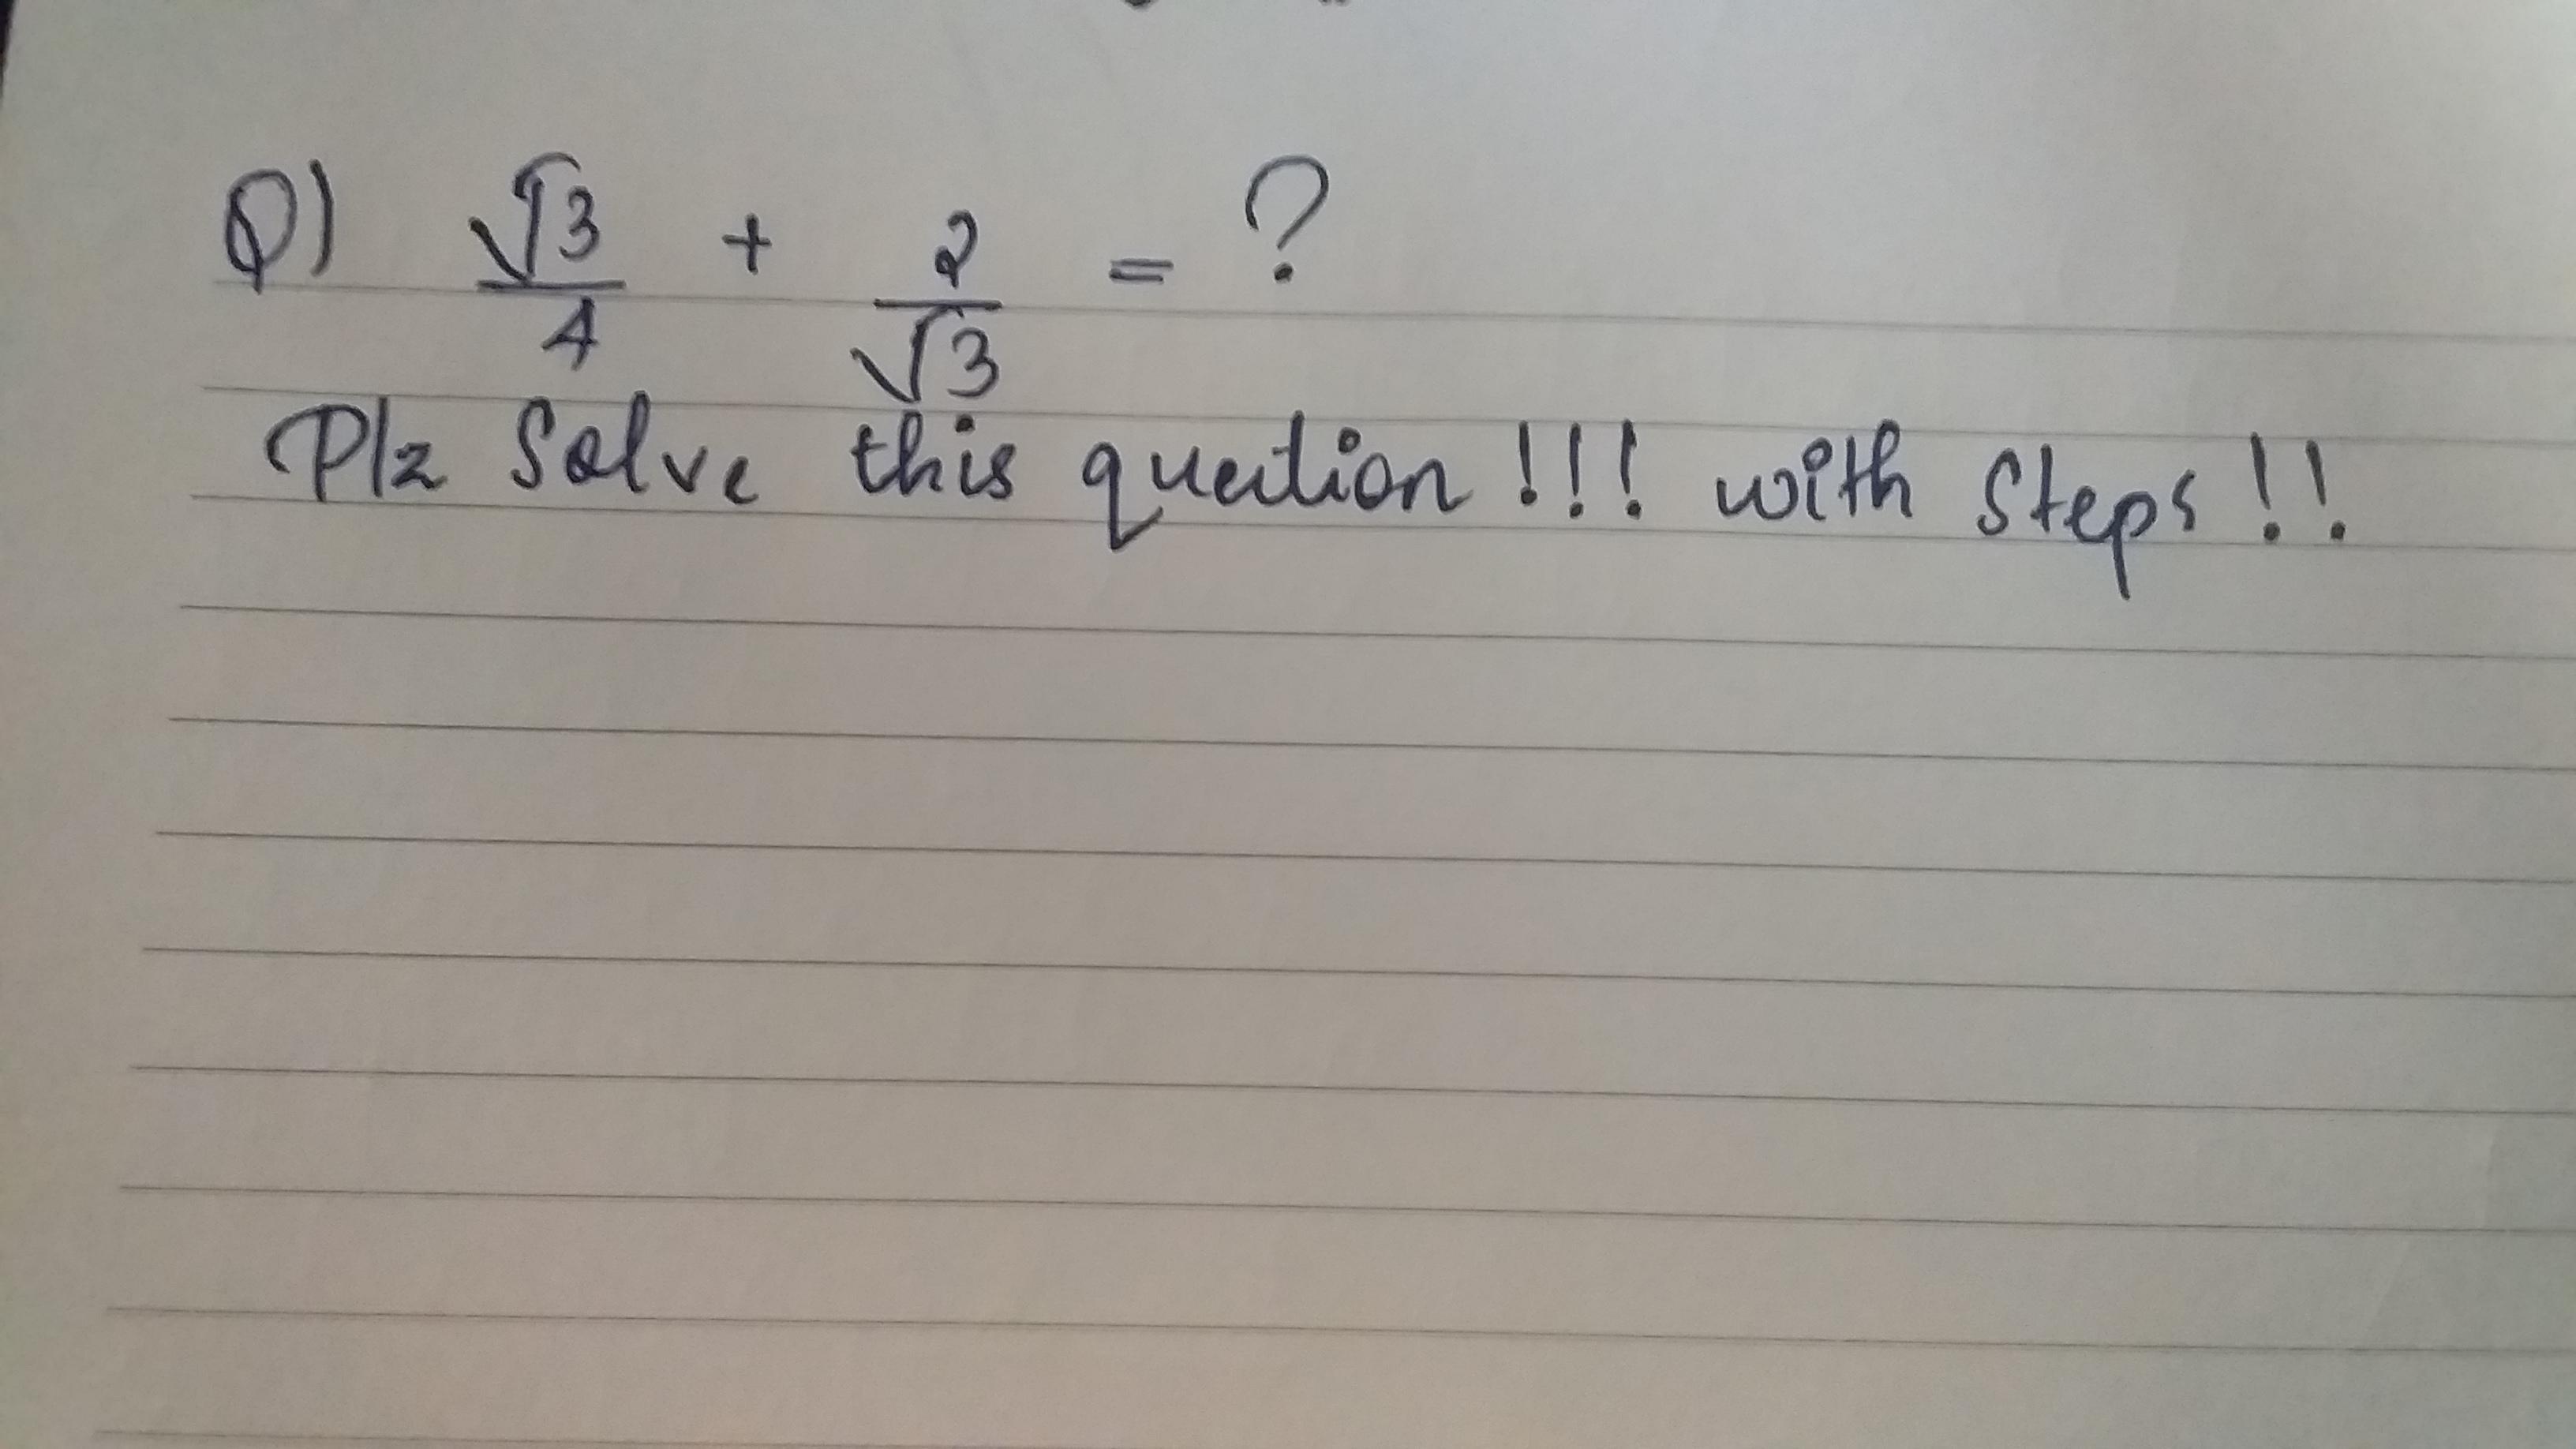 Q) √3/4 + 2/√3 = ?
Plz Solve this question !!! with steps !!